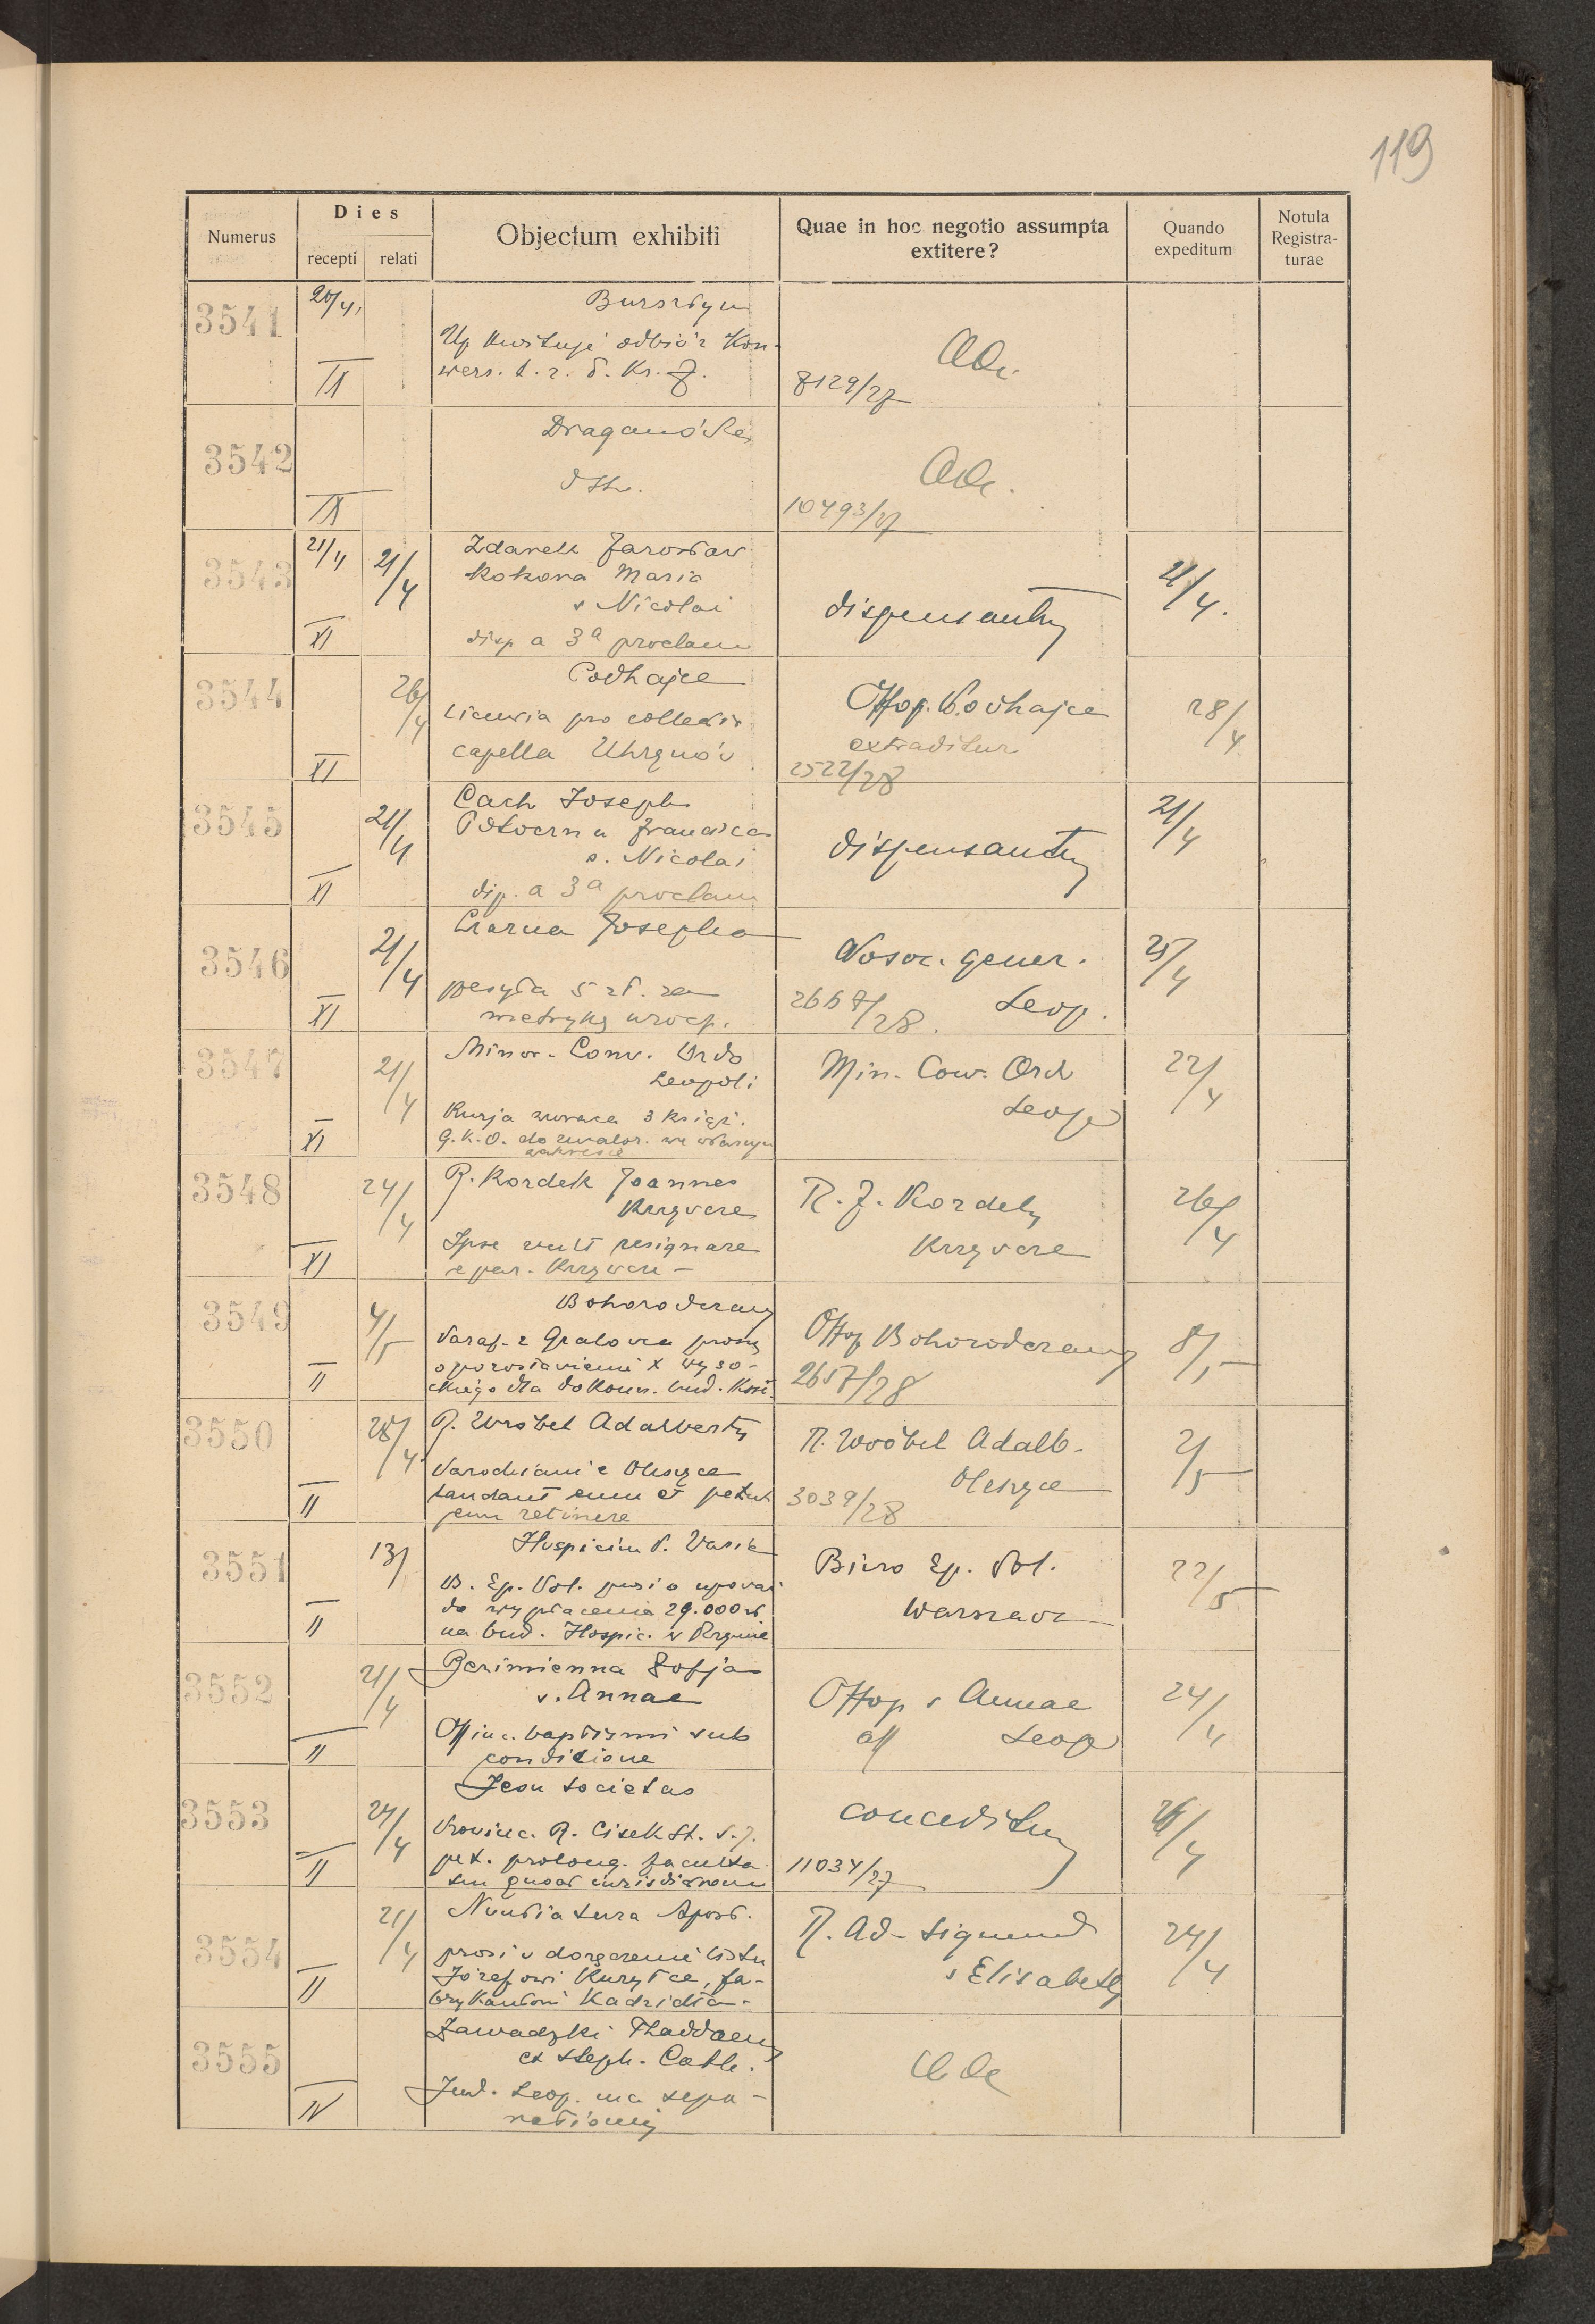 119
Numerus
Dies
recepti relati
Objectum exhibiti
Quae in hoc negotio assumpta
extitere?
Quando
expeditum
Notula
Registra-
turae
3541
20/4
IX
Bursztyn
Up kwituje odbiór Kon-
wers.
8129/27
3542
IX
Draganówka
10493/27
3543
21/4
21/4
XI
Zdanek Jarosław
Kokona Maria
s Nicolai
disp a 3a proclam
dispensantur
21/4.
3544
26/4
XI
Podhajce
licencia pro
capella Uhrynów
Offop. Podhajce
extraditur
2522/28
28/4
3545
21/4
XI
Cach Joseph
Francisca
s. Nicolai
disp. a 3a proclam
dispensantur
21/4
3546
21/4
XI
Czarna Josepha
posyła 5 zł. za
metrykę
Nosoc. gener.
Leop.
2667/28.
25/4
3547
21/4
XI
Minor. Conv. Ordo
Leopoli
Kurja zwraca 3 książ.
G.K.O. do zwalor. we własnym
zakresie
Min. Conv. Ord
Leop
22/4
3548
24/4
XI
R. Kordek Joannes
Krzywcze
Ipse vult resignare
e par. Krzywcze -
R. J. Kordek
Krzywcze
26/4
3549
4/5
II
Bohorodczany
Paraf. z proszą
o pozostawienie X Wyso-
ckiego dla dokończ. bud. Kośc.
Offop Bohorodczany
2657/28
8/5
3550
28/4
II
R. Wróbel Adalbertus
Parochiani e Oleszyce
laudant eum et petunt
eum retinere
R. Wróbel Adalb.
Oleszyce
3039/28
2/5
3551
13/
II
Hospicium P.
B. Ep. Pol. prosi o upoważ
do wypłacenia 29.000 zł
na bud. Hospic. w Rzymie
Biuro Ep. Pol.
Warszawa
22/5
3552
21/4
II
Bezimienna Zofja
s. Annae
Offic. baptismi sub
conditione
Offop s Annae
Leop
24/4
3553
24/4
II
Jesu Societas
Provinc. R. Cisek St. S.J.
pet. prolong. faculta
tum quoad iurisdictionem
conceditur
11034/27
26/4
3554
21/4
II
Nuntiatura Apost.
prosi o doręczenie listu
Józefowi Kuryłce, fa-
brykantowi Kadzidła.
R. Ad. Sigmund
s Elisabeth
24/4
3555
IV
Zawadzki Thaddaeus
et Steph. Cath.
Jud. Leop. in ca sepa-
rationis